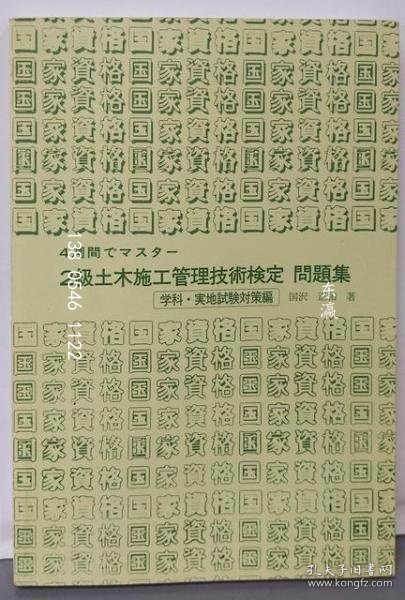 国家資格国家資格国家資格国家
国家資格国家資格国家資格
国家資格国家資格国家資格
国家資格国家資格国家資格
国家資格国家資格国家資格
国家資格国家資格国家資格
国家資格国家資格国家資格
4週間でマスター
2級土木施工管理技術検定 問題集
学科・実地試験対策編
国沢 著
国家資格国家資格国家資格
国家資格国家資格国家資格
国家資格国家資格国家資格
国家資格国家資格国家資格
国家資格国家資格国家資格
国家資格国家資格国家資格
国家資格国家資格国家資格
国家資格国家資格国家資格
国家資格国家資格国家資格
138 0546 1122
东瀛
孔夫子旧书网
www.kongfz.com